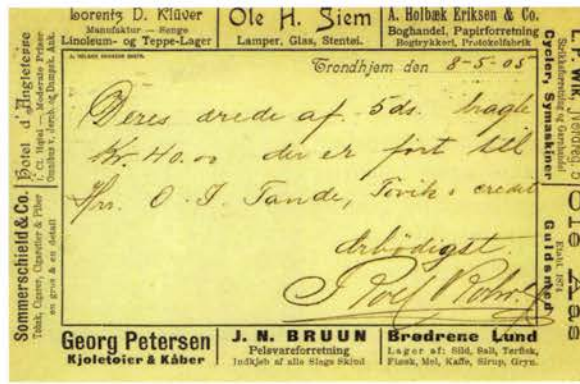 Lorentz D. Klüver
Manufaktur — Senge
Linoleum- og Teppe-Lager
Ole H. Siem
Lamper, Glas, Stentøi.
A. Holbæk Eriksen & Co.
Boghandel, Papirforretning
Bogtrykkeri, Protokolfabrik
Hotel d'Angleterre
1. Cl. Hotel — Moderate Priser
Omnibus v. Jernb. og Dampsk. Ank.
Sommerschield & Co.
Tobak, Cigarer, Cigaretter & Piber
en gros & en detail
A. HOLBÆK ERIKSEN
Trondhjem den 8-5-05
Deres ærede af 5ds. bragte
Kr. 40.00 der er ført til
Hrr. O. J. Tande, Tøviks credit
Ærbødigst
Cycler, Symaskiner
Ole Aas
Etabl. 1874
Guldsmed
Georg Petersen
Kjoletøier & Kåber
J. N. BRUUN
Pelsvareforretning
Indkjøb af alle Slags Skind
Brødrene Lund
Lager af: Sild, Salt, Tørfisk,
Flesk, Mel, Kaffe, Sirup, Gryn.